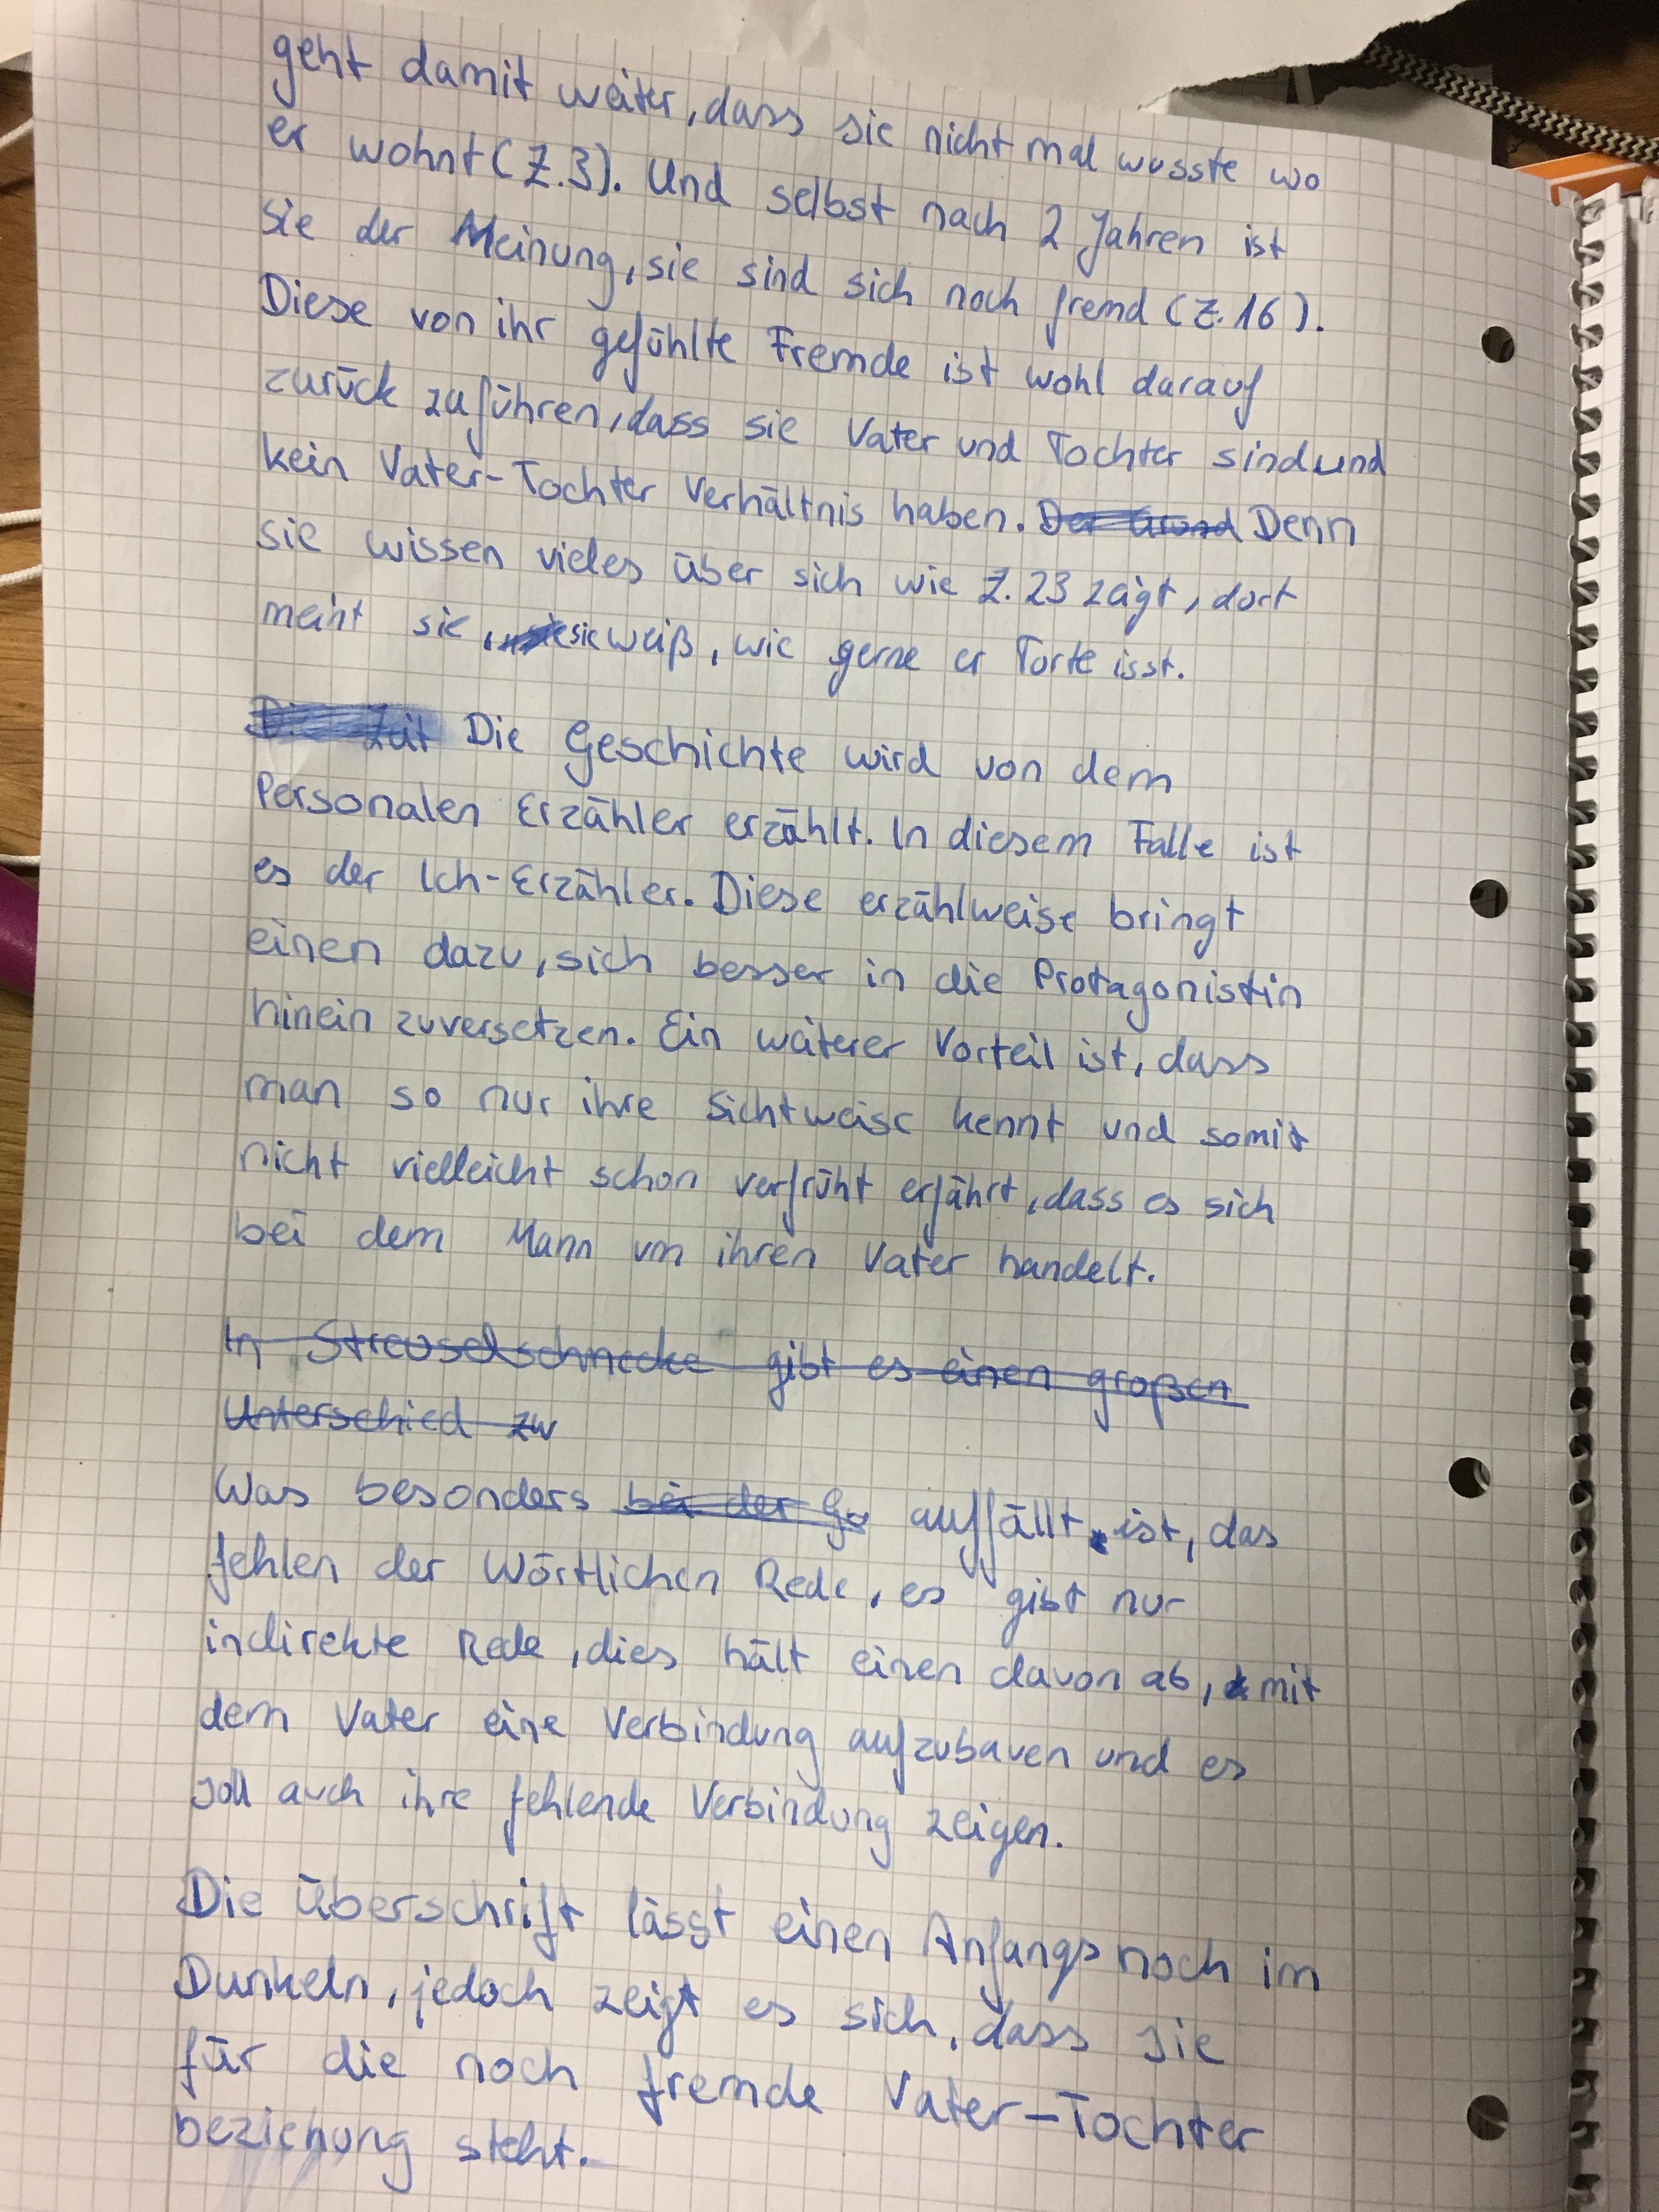 geht damit weiter, dass sie nicht mal wusste wo
er wohnt (Z.3). Und selbst nach 2 Jahren ist
sie der Meinung, sie sind sich noch fremd (Z.16).
Diese von ihr gefühlte Fremde ist wohl darauf
zurück zuführen, dass sie Vater und Tochter sind und
kein Vater-Tochter Verhältnis haben. Der Grund Denn
sie wissen vieles über sich wie Z. 23 zeigt, dort
meint sie, sie weiß, wie gerne er Torte isst.
Zeit Die Geschichte wird von dem
Personalen Erzähler erzählt. In diesem Falle ist
es der Ich-Erzähler. Diese erzählweise bringt
einen dazu, sich besser in die Protagonistin
hinein zuversetzen. Ein weiterer Vorteil ist, dass
man so nur ihre Sichtweise kennt und somit
nicht vielleicht schon verfrüht erfährt, dass es sich
bei dem Mann um ihren Vater handelt.
In Streuselschnecke gibt es einen großen
Unterschied zw
Was besonders bei der Ge auffällt ist, das
fehlen der Wörtlichen Rede, es gibt nur
indirekte Rede, dies hält einen davon ab, mit
dem Vater eine Verbindung aufzubauen und es
soll auch ihre fehlende Verbindung zeigen.
Die Überschrift lässt einen Anfangs noch im
Dunkeln, jedoch zeigt es sich, dass sie
für die noch fremde Vater-Tochter
beziehung steht.